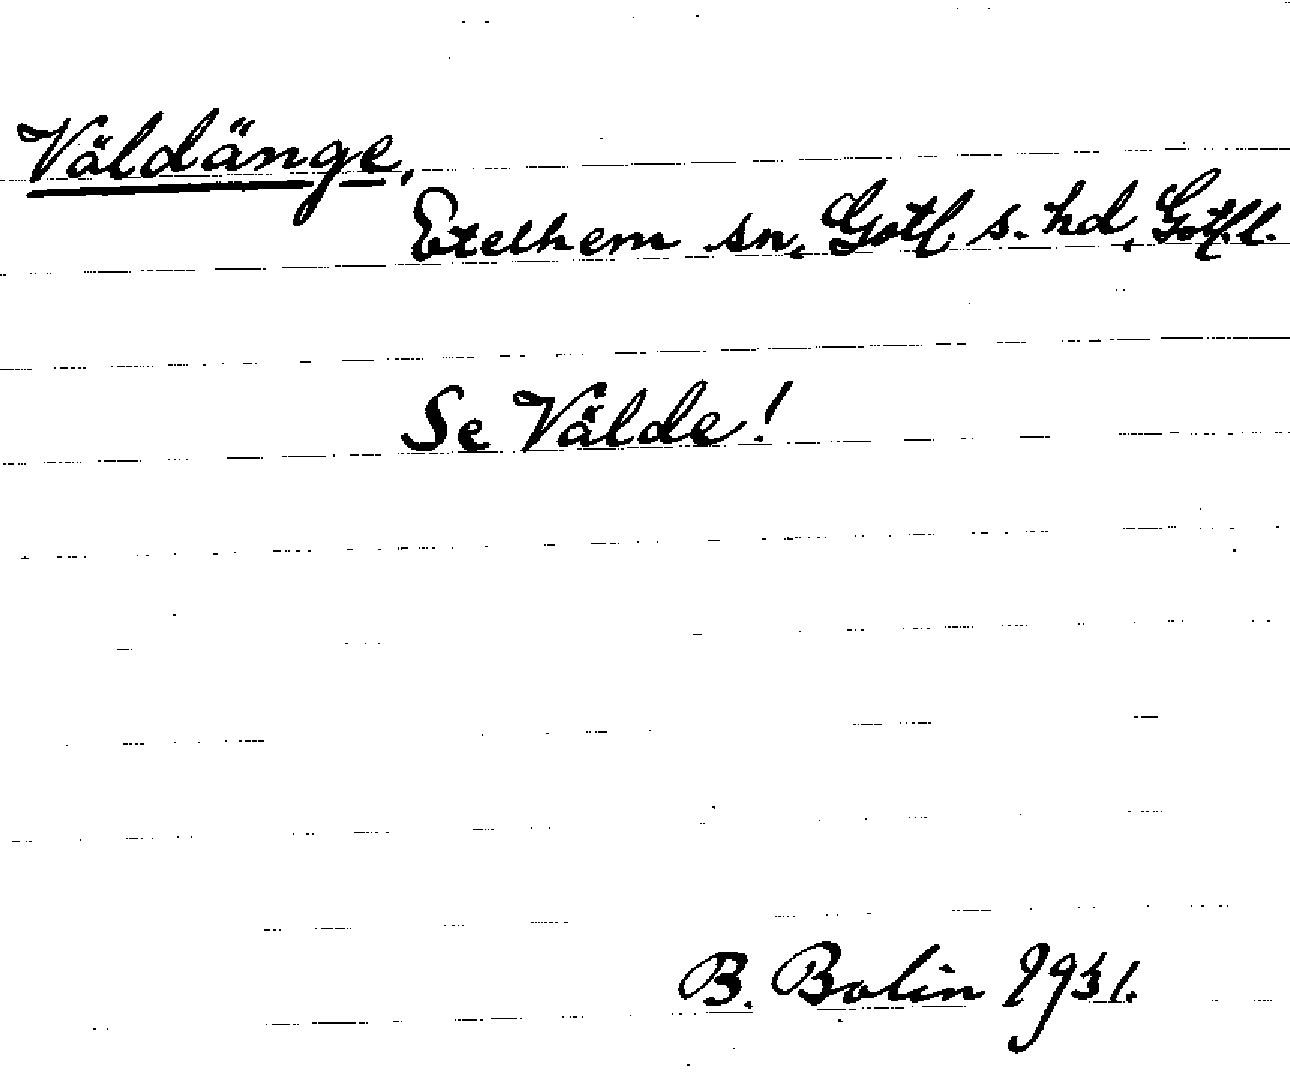 Väldänge,
Etelhem sn, Gotl. s. hd, Gotl. l.
Se Välde!
B. Bolin 1931.